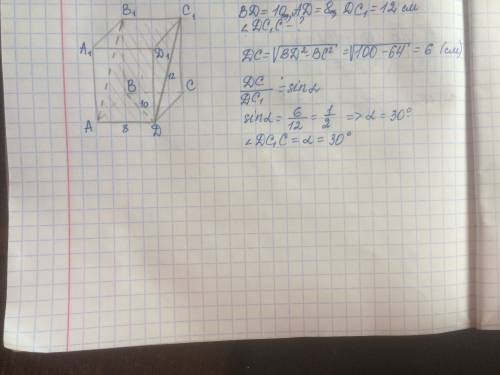 B₁ C₁
A₁ D₁
12
B C
10
A 8 D
BD = 10, AD = 8, DC₁ = 12 см
∠DC₁C - ?
DC = √BD² - BC² = √100 - 64 = 6 (см)
DC/DC₁ = sinα
sinα = 6/12 = 1/2 => α = 30°
∠DC₁C = α = 30°